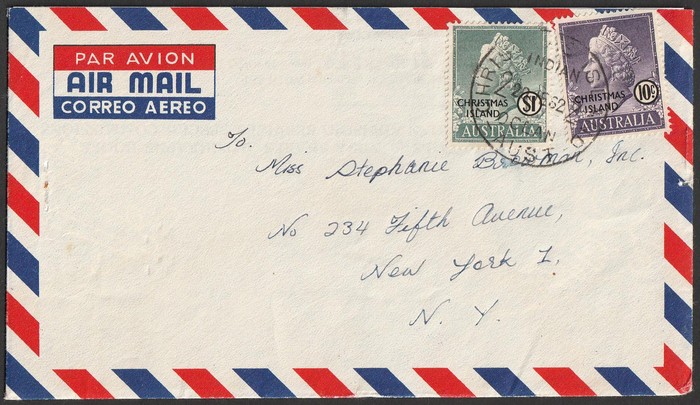 PAR AVION
AIR MAIL
CORREO AEREO
CHRISTMAS
ISLAND
$1
AUSTRALIA
CHRISTMAS
ISLAND
10c
AUSTRALIA
INDIAN
To.
Miss Stephanie Inc.
No 234 Fifth Avenue,
New York 1,
N. Y.